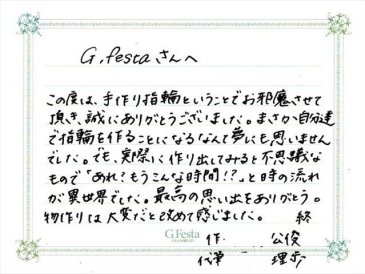 G.festaさんへ
この度は、手作り指輪ということでお邪魔させて
頂き、誠にありがとうございました。まさか自分達
で指輪を作ることになるなんて夢にも思いません
でした。でも、実際に作り出してみると不思議な
もので「あれ?もうこんな時間!?」と時の流れ
が異世界でした。最高の思い出をありがとう。
物作りは大変だと改めて感じました。 終
G.Festa
作 公俊